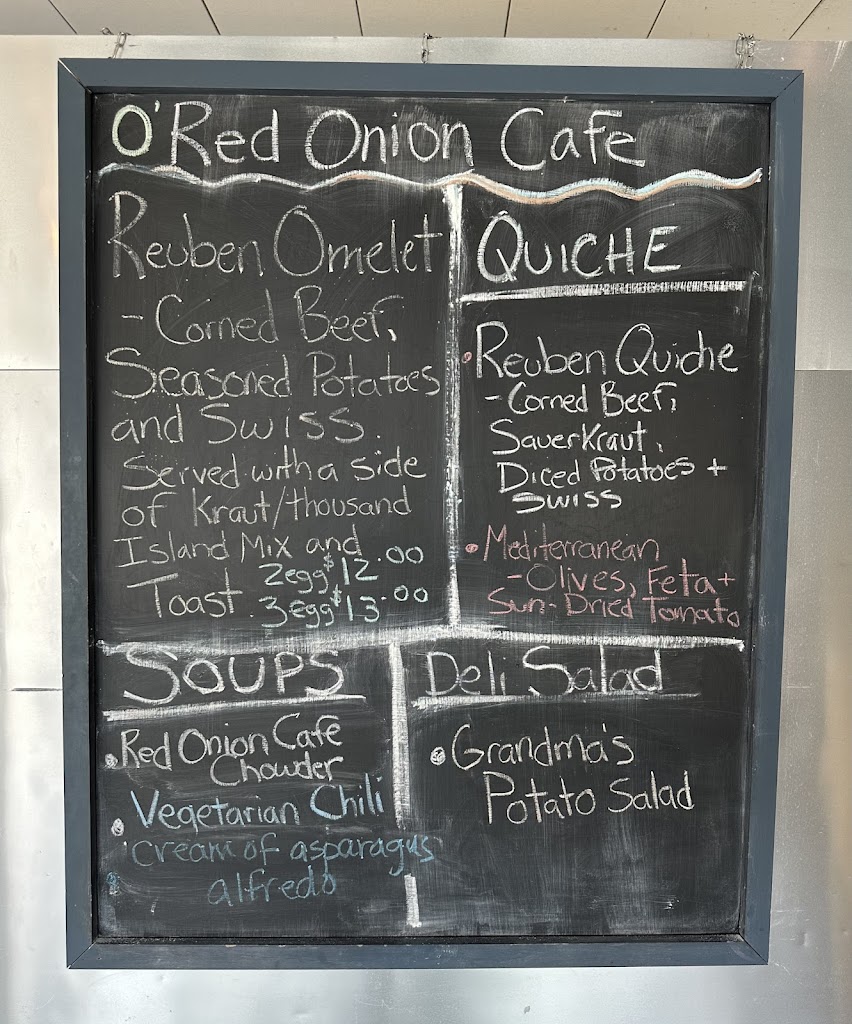 O'Red Onion Cafe
Reuben Omelet
- Corned Beef,
Seasoned Potatoes
and Swiss.
Served with a side
of Kraut/thousand
Island Mix and
Toast. 2egg $12.00
3egg $13.00
QUICHE
• Reuben Quiche
- Corned Beef,
Sauerkraut,
Diced Potatoes +
Swiss
• Mediterranean
- Olives, Feta +
Sun-Dried Tomato
SOUPS
• Red Onion Cafe
Chowder
• Vegetarian Chili
• cream of asparagus
alfredo
Deli Salad
• Grandma's
Potato Salad